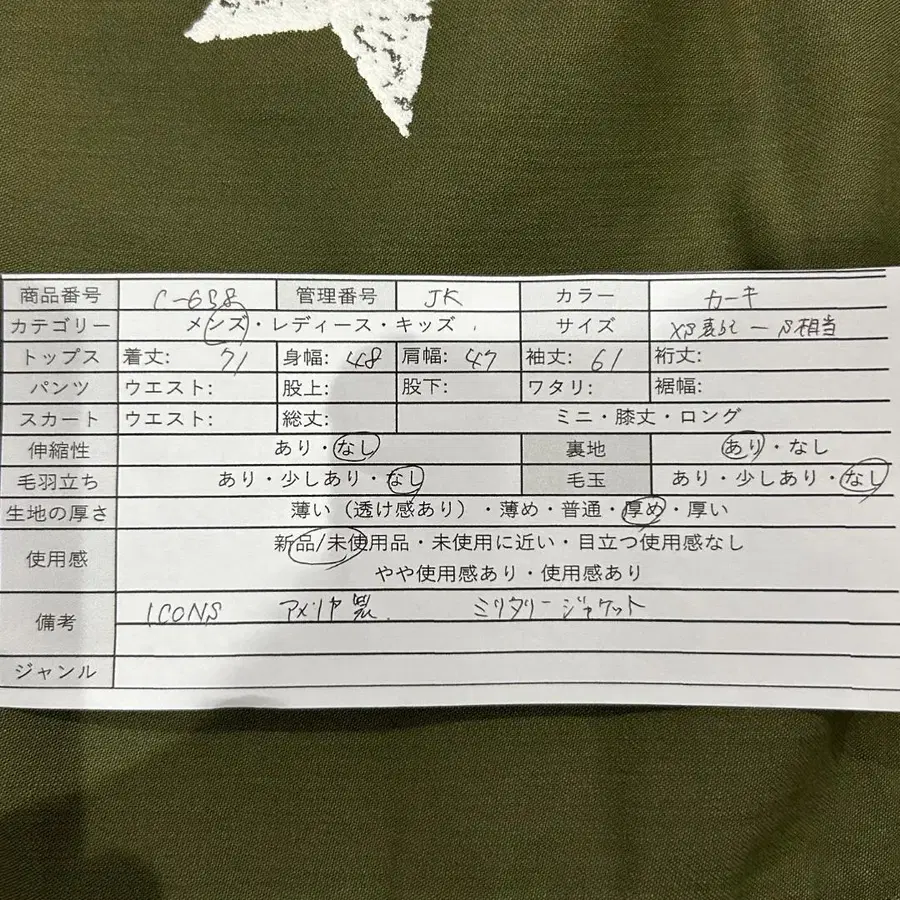 商品番号 C-638 管理番号 JK カラー カーキ
カテゴリー メンズ・レディース・キッズ サイズ XS表記 — S相当
トップス 着丈: 71 身幅: 48 肩幅: 47 袖丈: 61 裄丈:
パンツ ウエスト: 股上: 股下: ワタリ: 裾幅:
スカート ウエスト: 総丈: ミニ・膝丈・ロング
伸縮性 あり・なし 裏地 あり・なし
毛羽立ち あり・少しあり・なし 毛玉 あり・少しあり・なし
生地の厚さ 薄い（透け感あり）・薄め・普通・厚め・厚い
使用感 新品/未使用品・未使用に近い・目立つ使用感なし
やや使用感あり・使用感あり
備考 ICONS アメリカ製 ミリタリージャケット
ジャンル